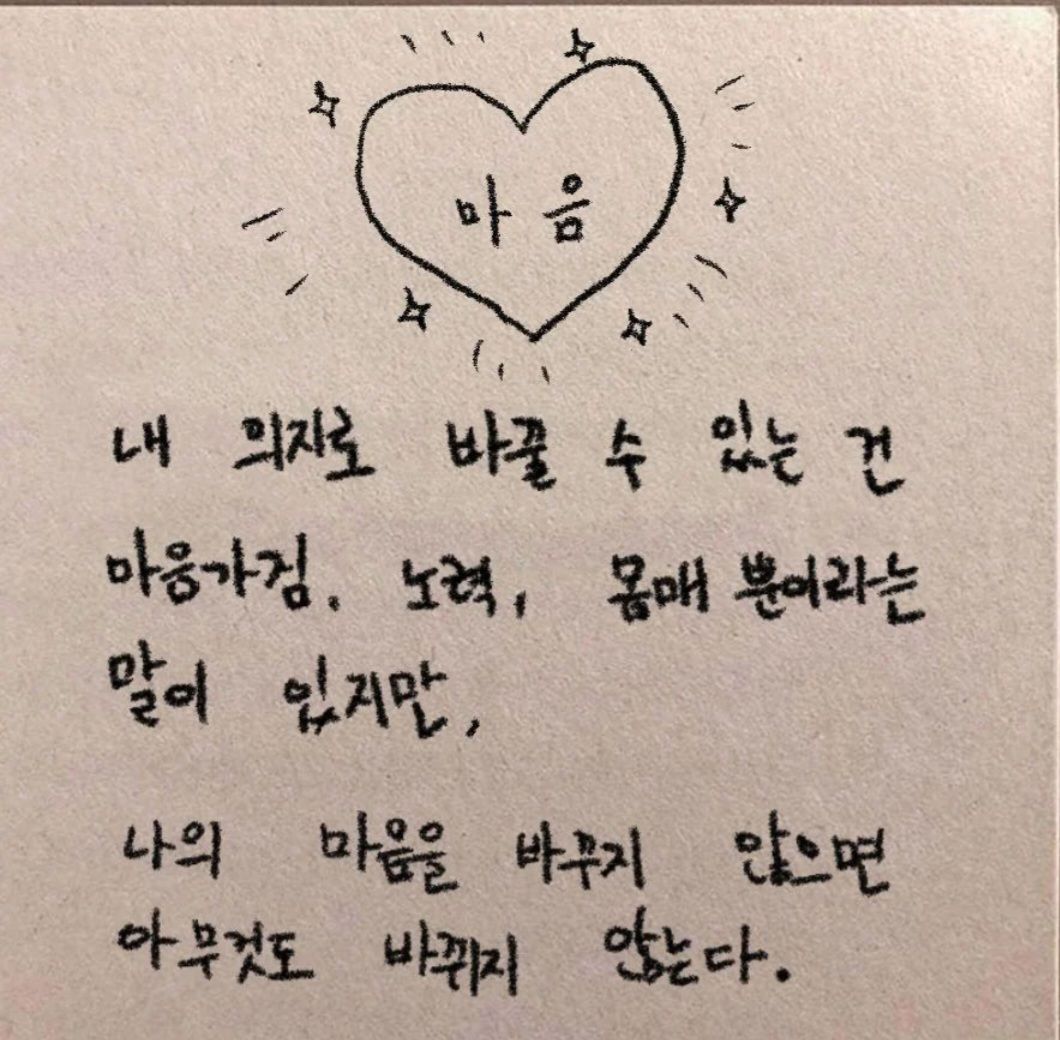 마음
내 의지로 바꿀 수 있는 건
마음가짐, 노력, 몸매 뿐이라는
말이 있지만,
나의 마음을 바꾸지 않으면
아무것도 바뀌지 않는다.